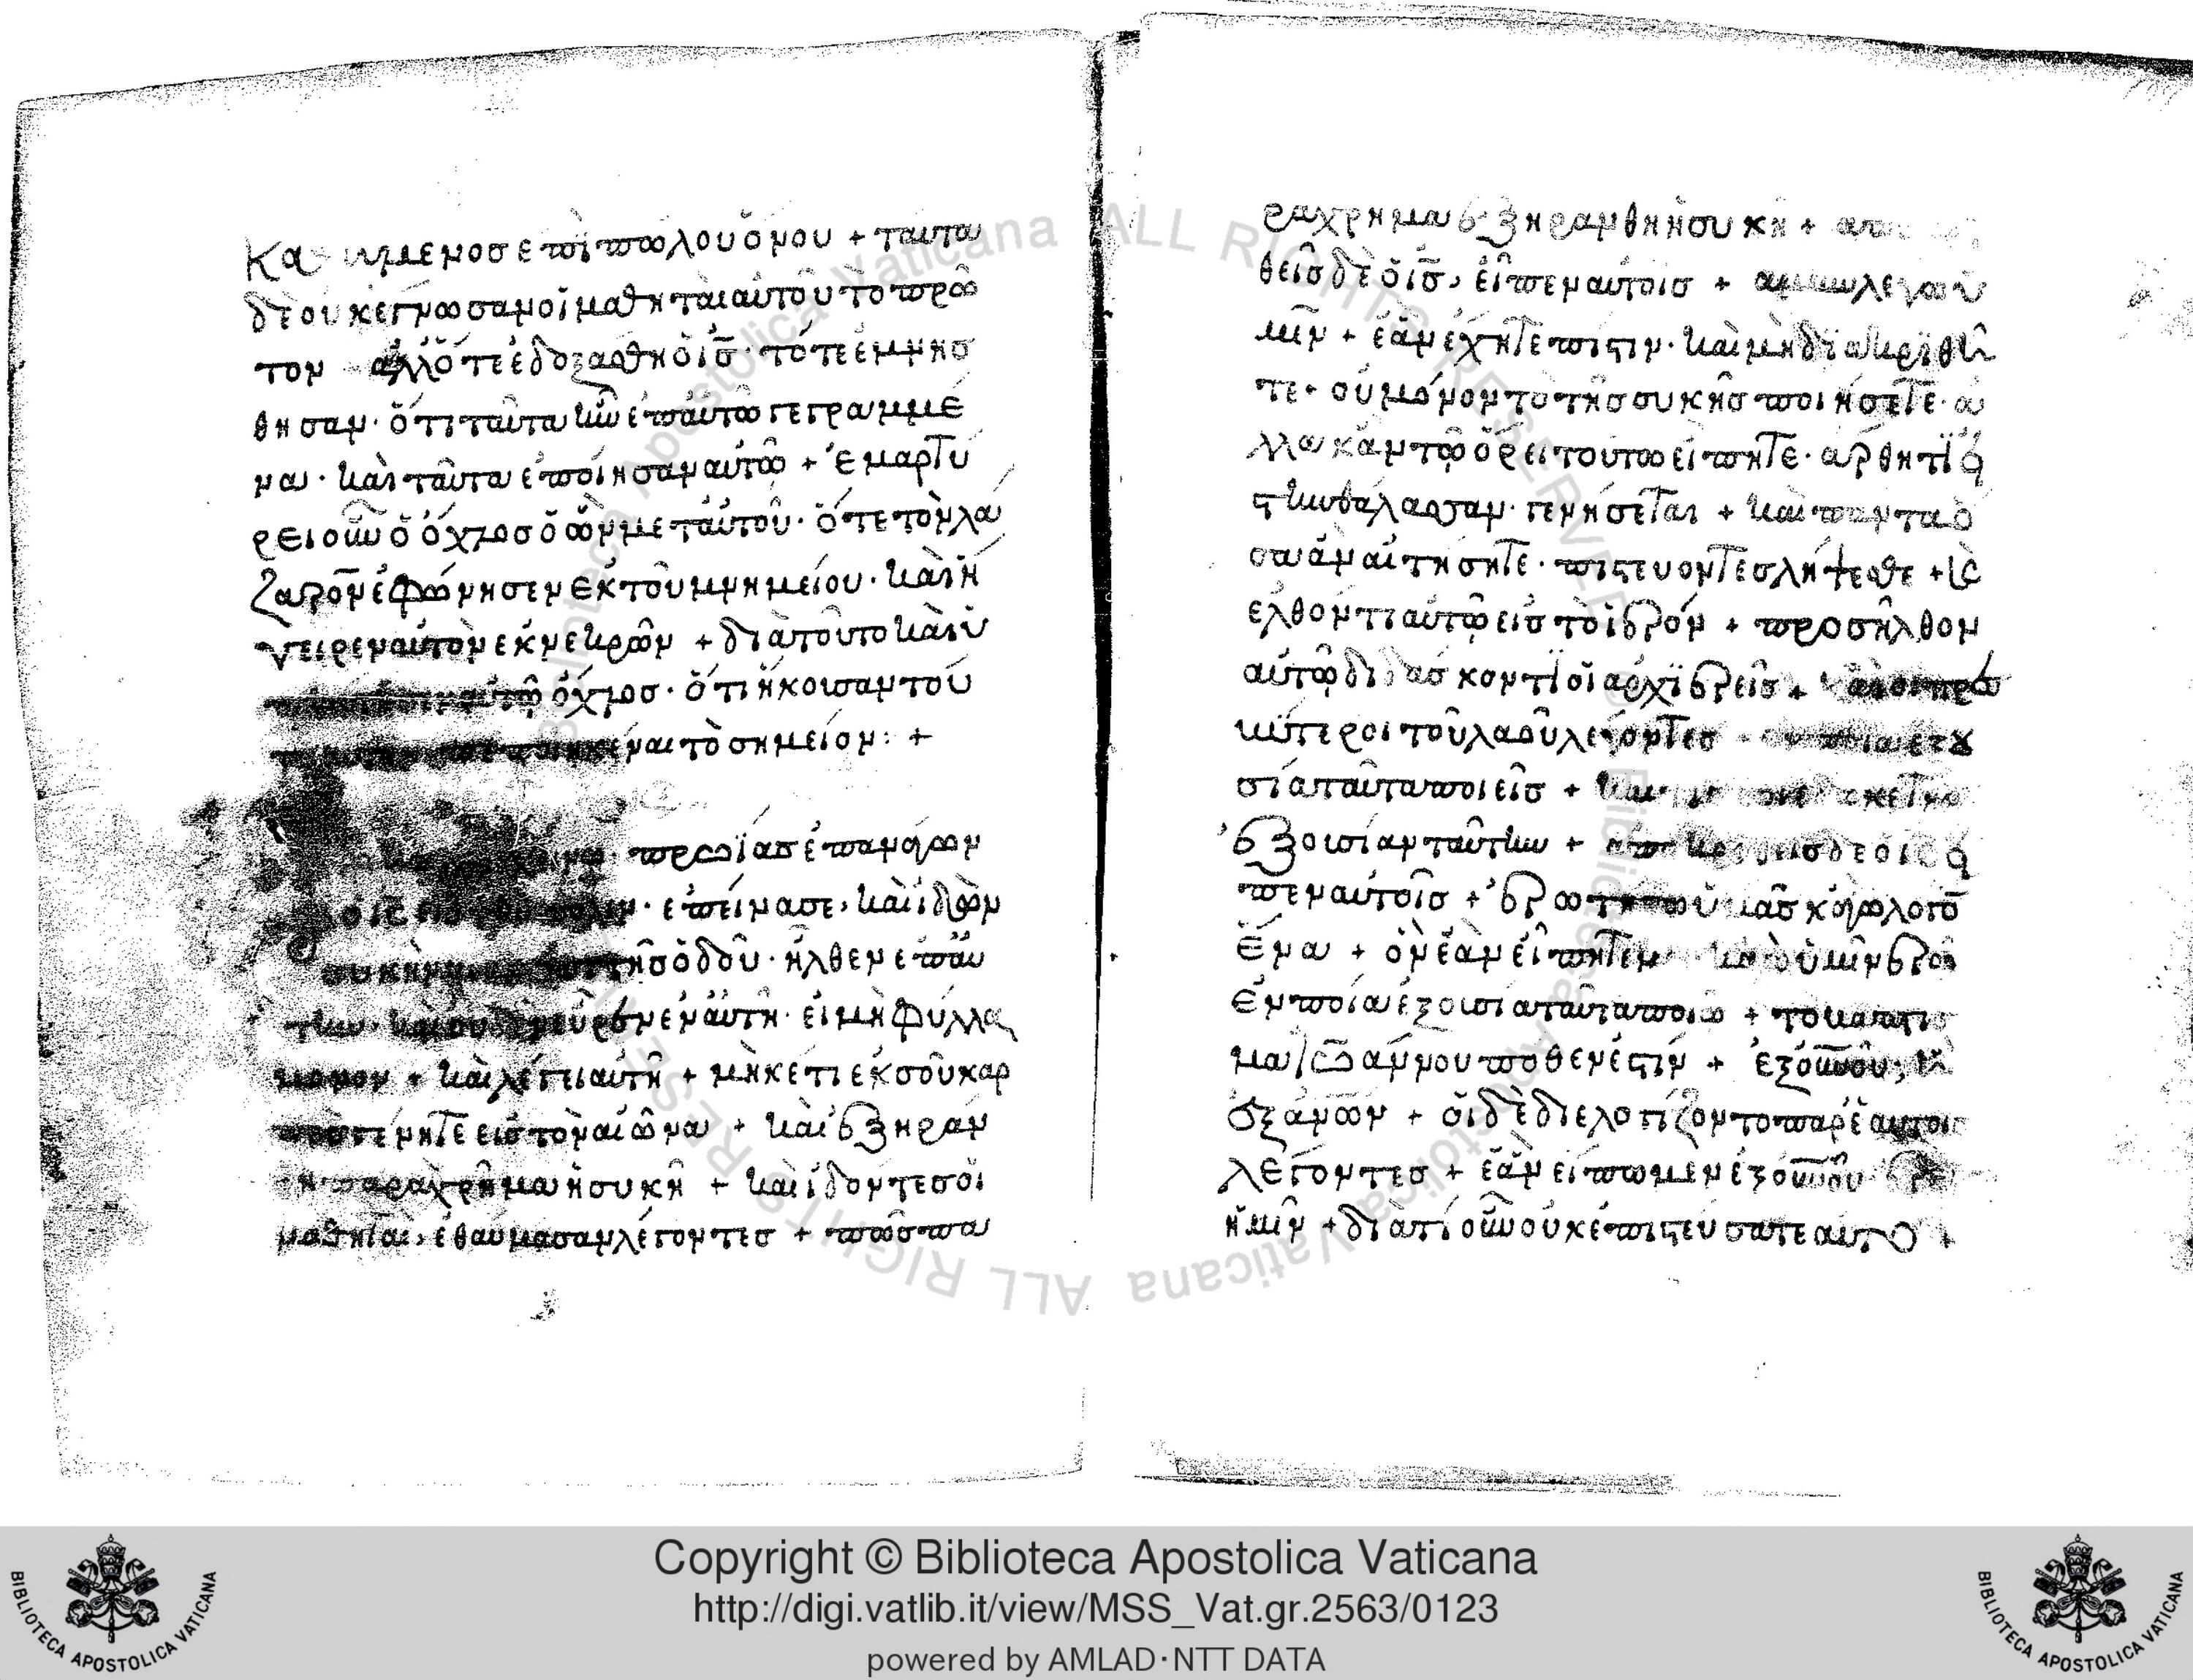 μενος επι πωλου ὄνου + ταυτα
δὲ ουκ εγνωσαν οἱ μαθηται αὐτοῦ τὸ πρῶ
τον ἀλλ ὅτε ἐδοξασθη ὁ ις· τότε ἐμνησ
θησαν· ὅτι ταῦτα ἦν ἐπ αὐτω γεγραμμέ
να· καὶ ταῦτα ἐποίησαν αὐτῶ + ἐμαρτύ
ρει οὖν ὁ ὄχλος ὁ ὢν μετ αὐτοῦ· ὅτε τὸν λά
ζαρον ἐφώνησεν ἐκ τοῦ μνημείου· καὶ ἤ
γειρεν αὐτὸν ἐκ νεκρῶν + διὰ τοῦτο καὶ ὑ
ὄχλος· ὅτι ἤκουσαν τοῦ
ναι τὸ σημεῖον: +
πρωΐας ἐπανάγων
ὁ ις εἰς τὴν πόλιν· ἐπείνασε, καὶ ἰδὼν
συκὴν τῆς ὁδοῦ· ἦλθεν ἐπ αὐ
τὴν· καὶ οὐδὲν εὗρεν ἐν αὐτῆ· εἰ μὴ φύλλα
μονον + καὶ λέγει αὐτῆ + μὴκέτι ἐκ σοῦ καρ
πὸς γένητε εἰς τὸν αἰῶνα + καὶ ἐξηράν
θη παραχρῆμα ἡ συκῆ + καὶ ἰδόντες οἱ
μαθηταὶ, ἐθαύμασαν λέγοντες + πῶς πα
ραχρημα ἐξηρανθη ἡ συκῆ + απο
θεὶς δὲ ὁ ις, εἶπεν αὐτοῖς + αμην λεγω ὑ
μῖν + ἐὰν ἔχητε πίστιν· καὶ μὴ διακριθῆ
τε· οὐ μόνον τὸ τῆς συκῆς ποιήσετε· ἀ
λλα κἂν τῶ ὄρει τούτω εἴπητε· ἄρθητι
τὴν θάλασσαν· γενήσεται + καὶ παντα ὅ
σα ἂν αἰτήσητε· πιστευοντες λήψεσθε +
ελθόντι αὐτῶ εἰς τὸ ἱερόν + προσῆλθον
αὐτῶ διδάσκοντι οἱ ἀρχϊερεῖς + καὶ οἱ πρε
σβύτεροι τοῦ λαοῦ λέγοντες ἐν ποία ἐξου
σία ταῦτα ποιεῖς +
ἐξουσίαν ταύτην + ἀποκριθεὶς δὲ ὁ ις
πεν αὐτοῖς + ἐρωτήσω ὑμᾶς κἀγὼ λόγον
ἕνα + ὃν ἐὰν εἴπητε μοι κἀγὼ ὑμῖν ἐρῶ
ἐν ποία ἐξουσία ταῦτα ποιῶ + το βάπτισ
μα ἰωάννου πόθεν ἐστίν + ἐξ οὐνοῦ;
ἐξ ἀνων + οἱ δὲ διελογίζοντο παρ ἑαυτοις
λέγοντες + ἐὰν εἴπωμεν ἐξ οὐνοῦ
ἡμῖν + διατί οὖν οὐκ ἐπιστεύσατε αὐτῶ +
Copyright © Biblioteca Apostolica Vaticana
http://digi.vatlib.it/view/MSS_Vat.gr.2563/0123
powered by AMLAD·NTT DATA
BIBLIOTECA APOSTOLICA VATICANA
BIBLIOTECA APOSTOLICA VATICANA